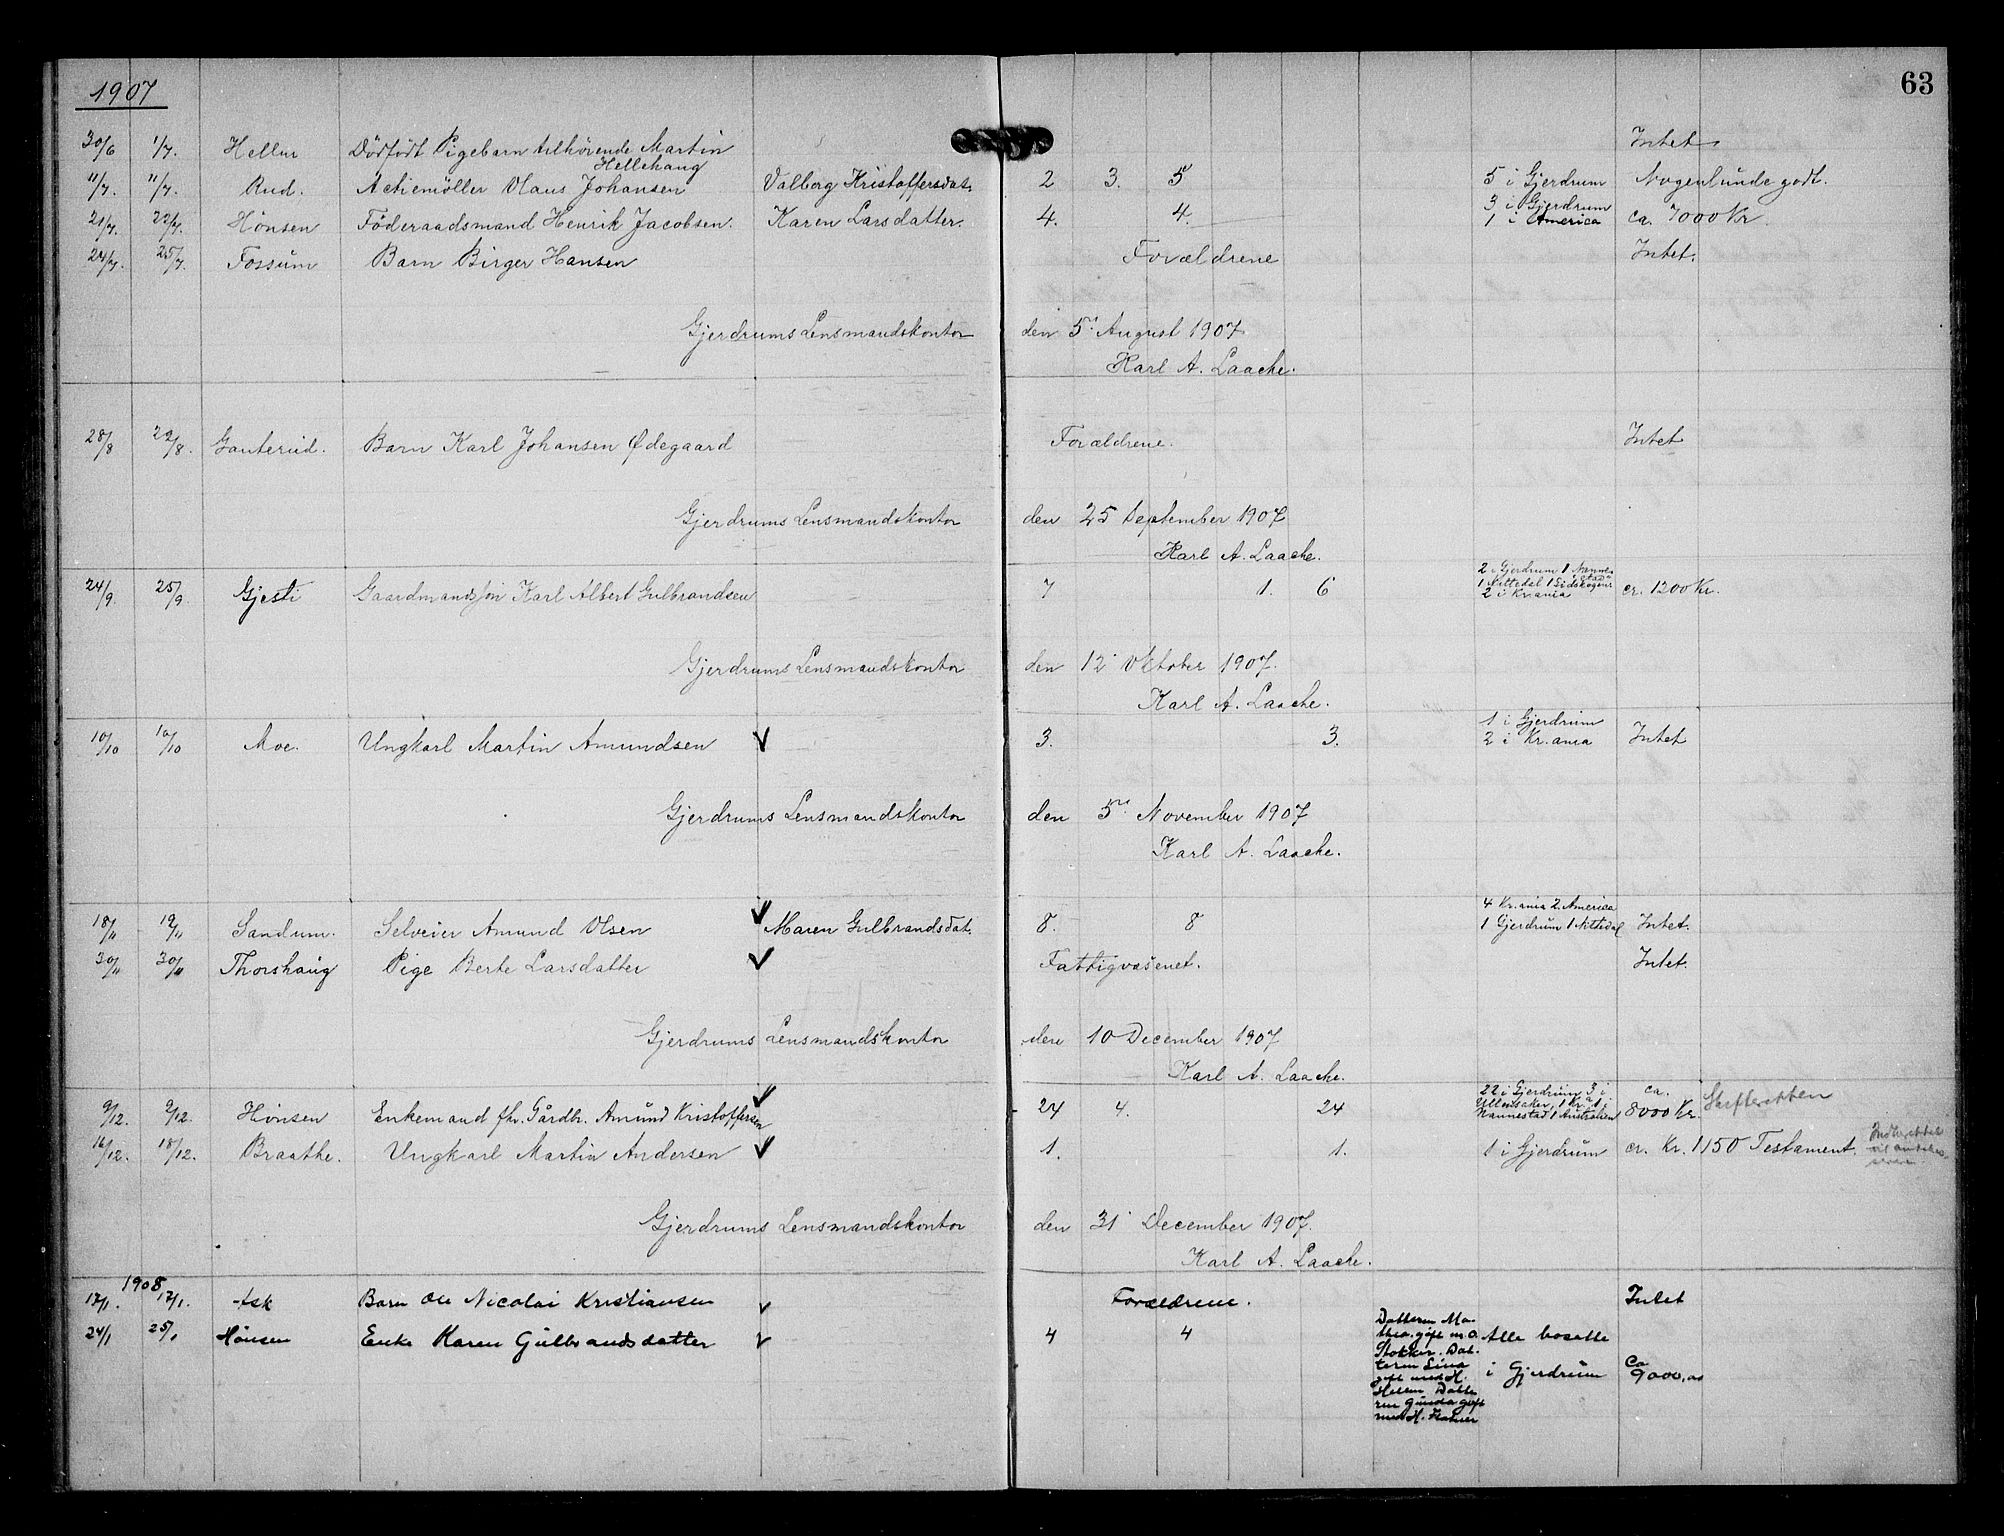 63
1907
30/6 1/7. Hellen Dödfödt Pigebarn tilhörende Martin Intet.
Hellehaug
11/7. 11/7. Rud. Actiemöller Olaus Johansen Valborg Kristoffersdat. 2 3. 5 5 i Gjerdrum Nogenlunde godt.
21/7. 22/7. Hönsen Föderaadsmand Henrik Jacobsen. Karen Larsdatter. 4. 4. 3 i Gjerdrum
1 i America ca. 7000 Kr.
24/7. 25/7 Fossum Barn Birger Hansen Forældrene Intet.
Gjerdrums Lensmandskontor den 5' August 1907
Karl A. Laache.
28/8 29/8. Ganterud. Barn Karl Johansen Ødegaard Forældrene. Intet
Gjerdrums Lensmandskontor den 25 September 1907
Karl A. Laache.
24/9. 25/9 Gjesti Gaardmandssön Karl Albert Gulbrandsen 7 1. 6 2 i Gjerdrum 1 Nannestad
1 Nittedal 1
2 i Kr.ania cr. 1200 Kr.
Gjerdrums Lensmandskontor den 12' Oktober 1907.
Karl A. Laache.
10/10 10/10 Moe. Ungkarl Martin Amundsen 3. 3. 1 i Gjerdrum
2 i Kr.ania Intet
Gjerdrums Lensmandskontor den 5' November 1907
Karl A. Laache.
18/11 19/11 Sandum. Selveier Amund Olsen Maren Gulbrandsdat. 8. 8 4 Kr.ania 2 America
1 Gjerdrum 1 Nittedal Intet.
30/11 30/11 Thorshaug Pige Berte Larsdatter Fattigvæsenet. Intet.
Gjerdrums Lensmandskontor den 10 December 1907
Karl A. Laache.
9/12. 9/12. Hönsen Enkemand fhv. Gårdbr. Amund Kristoffersen 24 4. 24 22 i Gjerdrum 3 i
Ullensaker, 1 Kr.a 1 i
Nannestad 1 Australien ca. 8000 Kr. Skifteretten
16/12. 18/12. Braathe. Ungkarl Martin Andersen 1. 1. 1 i Gjerdrum cr. Kr. 1150 Testament.
Gjerdrums Lensmandskontor den 31' December 1907.
Karl A. Laache.
1908
17/1. 17/1. Ask Barn Ole Nicolai Kristiansen Forældrene. Intet
24/1 25/1 Hönsen Enke Karen Gulbrandsdatter 4 4 Datteren Ma-
thea. gift m. O.
Stokker. Dat-
teren Lina
gift med H.
Hellen Datte
ren Gunda gift
med H. Alle bosatte
i Gjerdrum Ca 9000,00